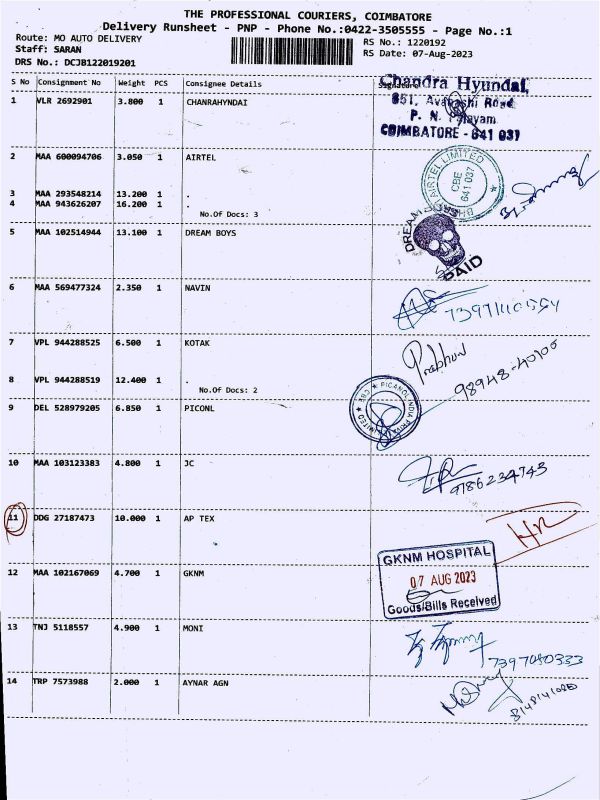 THE PROFESSIONAL COURIERS, COIMBATORE
Delivery Runsheet - PNP - Phone No.:0422-3505555 - Page No.:1
Route: MO AUTO DELIVERY
RS No.: 1220192
Staff: SARAN
RS Date: 07-Aug-2023
DRS No.: DCJB122019201
S No Consignment No Weight PCS Consignee Details Signature
Chandra Hyundai,
1 VLR 2692901 3.800 1 CHANRAHYNDAI
851, Avanashi Road
P. N. Palayam
COIMBATORE - 641 037
2 MAA 600094706 3.050 1 AIRTEL
AIRTEL LIMITED
CBE
641 037
3 MAA 293548214 13.200 1 .
4 MAA 943626207 16.200 1 .
No.Of Docs: 3
5 MAA 102514944 13.100 1 DREAM BOYS
DREAM BOYS
PAID
6 MAA 569477324 2.350 1 NAVIN
7397110554
7 VPL 944288525 6.500 1 KOTAK
Prabhu
98948-40100
8 VPL 944288519 12.400 1 .
No.Of Docs: 2
9 DEL 528979205 6.850 1 PICONL
PICANOL INDIA PRIVATE LIMITED ★ CBE ★
10 MAA 103123383 4.800 1 JC
9786234743
11 DDG 27187473 10.000 1 AP TEX
GKNM HOSPITAL
12 MAA 102167069 4.700 1 GKNM
07 AUG 2023
Goods/Bills Received
13 TNJ 5118557 4.900 1 MONI
7397040333
14 TRP 7573988 2.000 1 AYNAR AGN